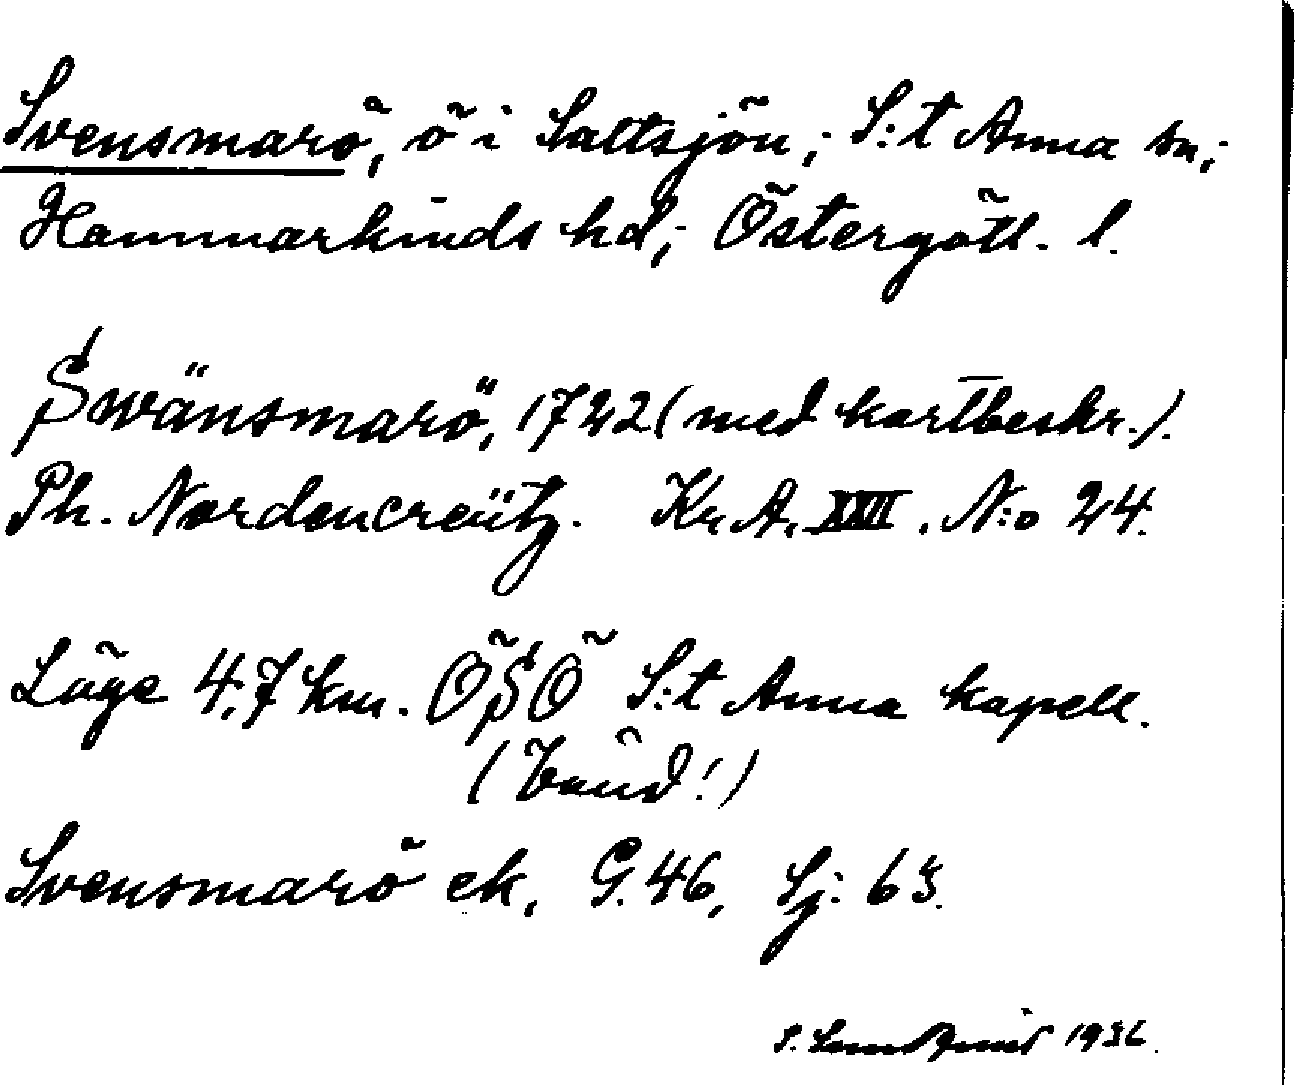 Svensmarö, ö i Saltsjön; S:t Anna sn;
Hammarkinds hd; Östergötl. l.
Swänsmarö, 1722 (med kartbeskr.).
Ph. Nordencreütz. Kr. A. XXII. N:o 24.
Läge 4,7 km. ÖSÖ S:t Anna kapell.
Svensmarö ek. G. 46, Sj: 63.
1936.